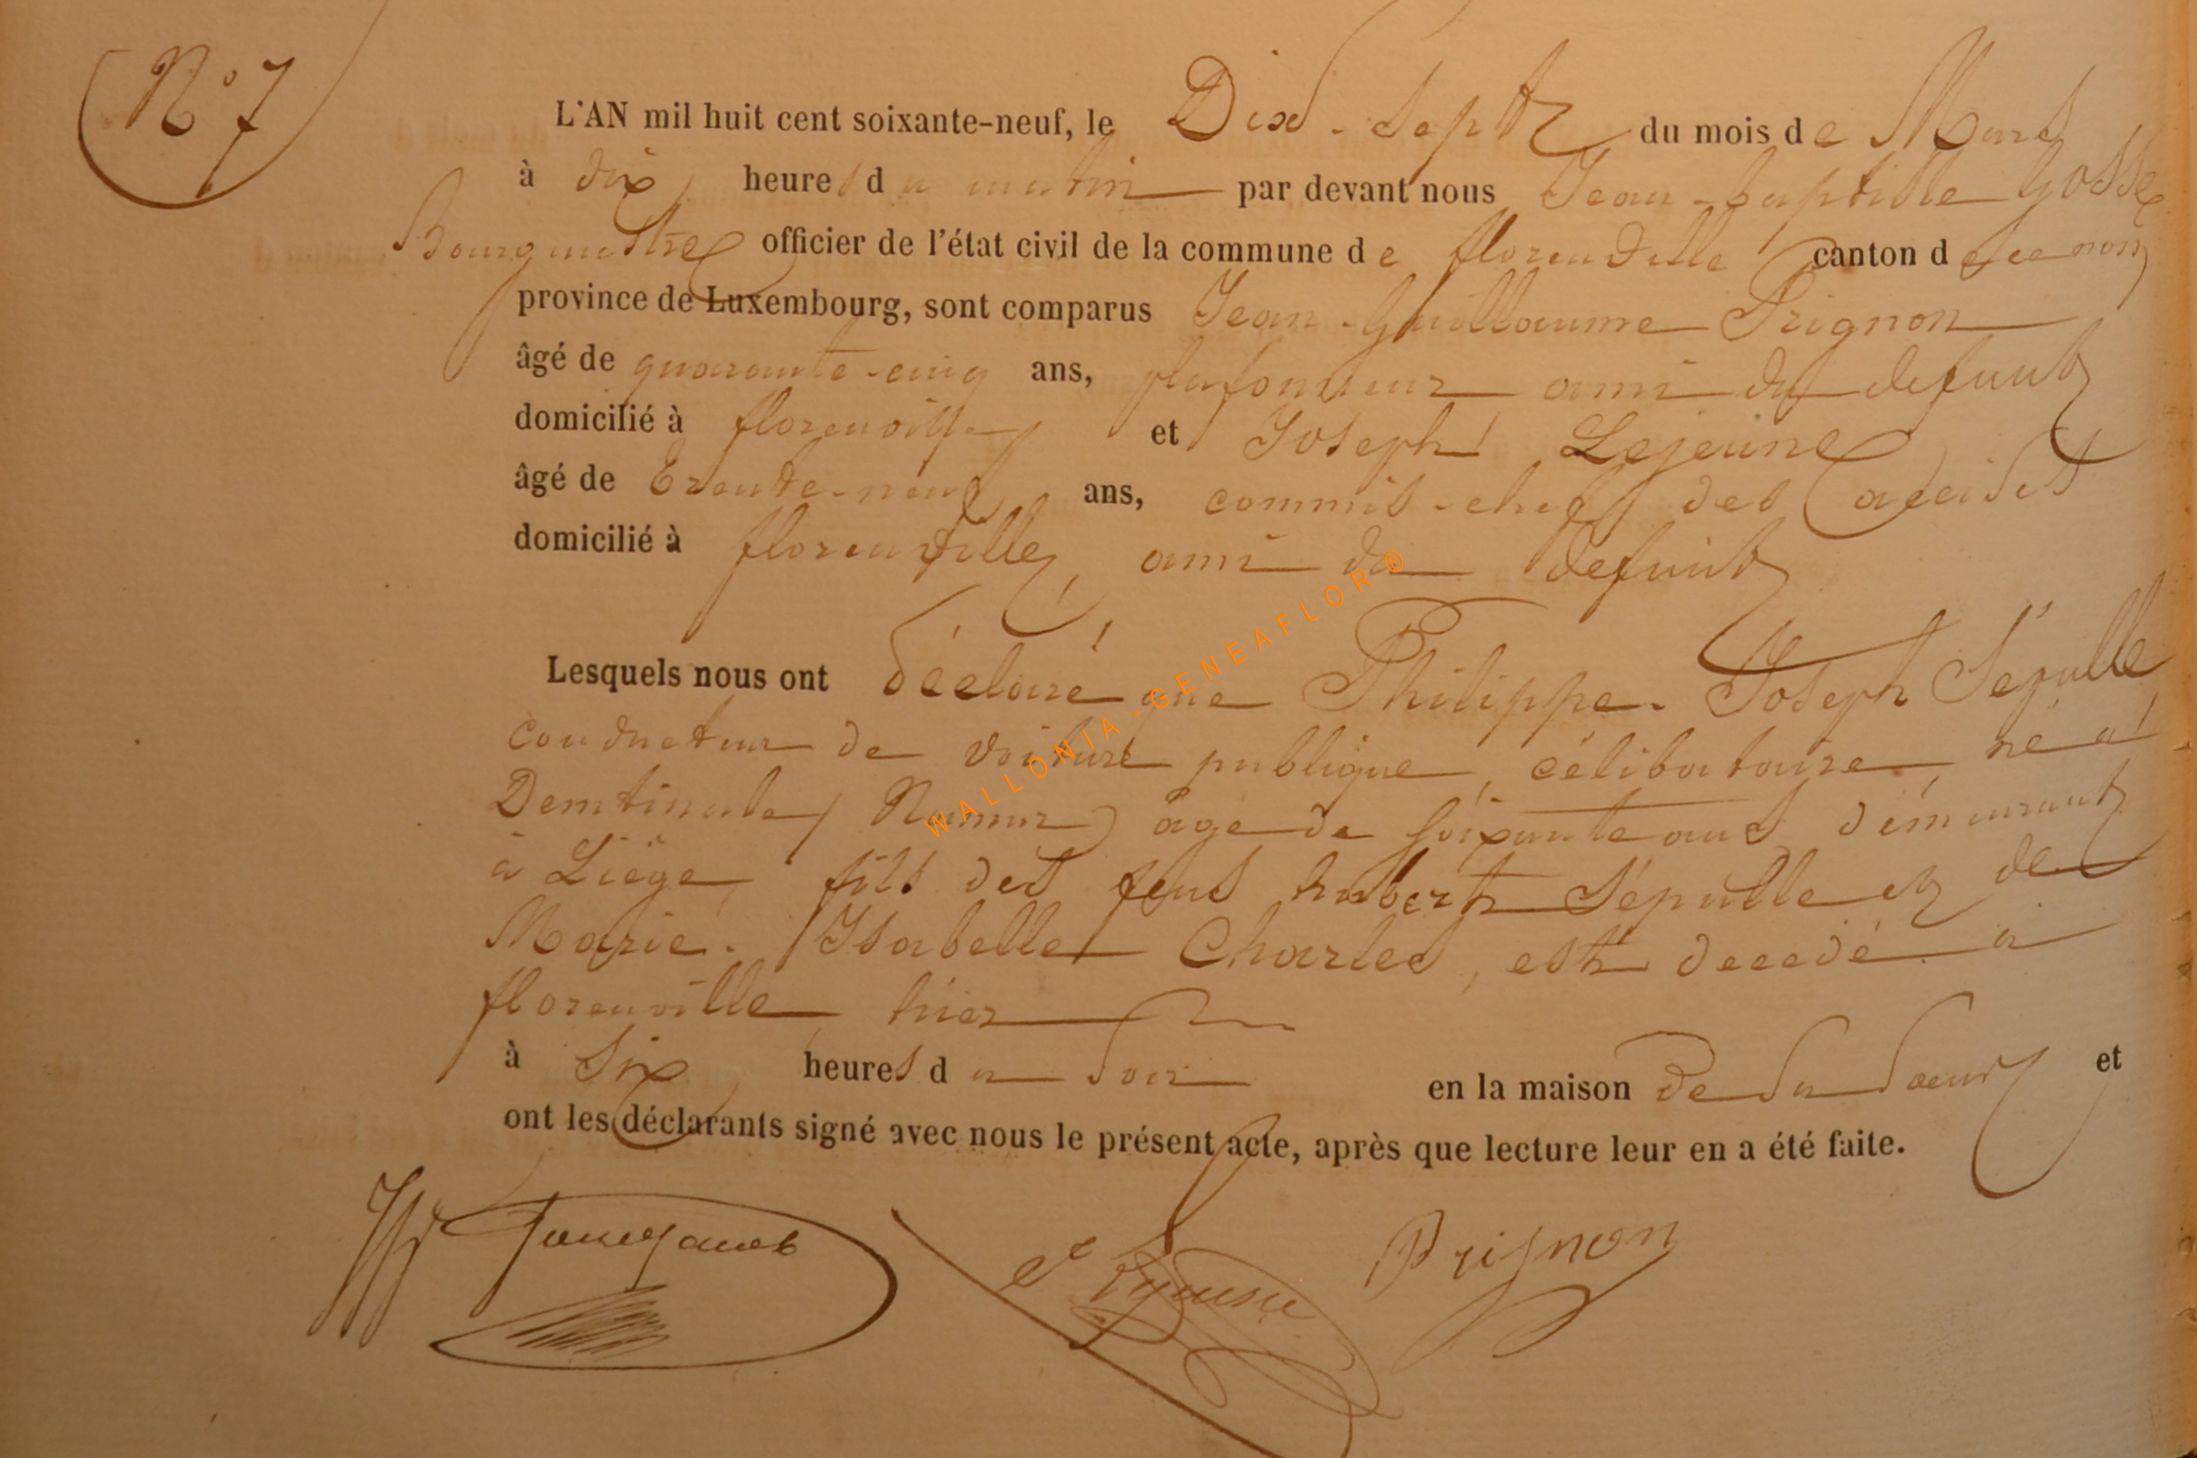 N° 7
L'AN mil huit cent soixante-neuf, le Dix-Sept du mois de Mars
à dix heures du matin par devant nous Jean-baptiste Gosse
Bourgmestre officier de l'état civil de la commune de florenville canton de ce nom
province de Luxembourg, sont comparus Jean-Guillaume Prignon
âgé de quarante-cinq ans, plafonneur ami du defunt
domicilié à florenville et Joseph Lejeune
âgé de trente-neuf ans, commis-chef des accises
domicilié à florenville, ami du defunt
Lesquels nous ont déclaré que Philippe-Joseph Sépulle
conducteur de voiture publique, célibataire, né à
(Namur) âgé de soixante ans, démeurant
à Liége, fils des feus hubert Sépulle et de
Marie-Isabelle Charles, est decedé à
florenville hier
à six heures du soir en la maison de sa soeur et
ont les déclarants signé avec nous le présent acte, après que lecture leur en a été faite.
Lejeune Prignon
WALLONIA-GENEAFLOR®